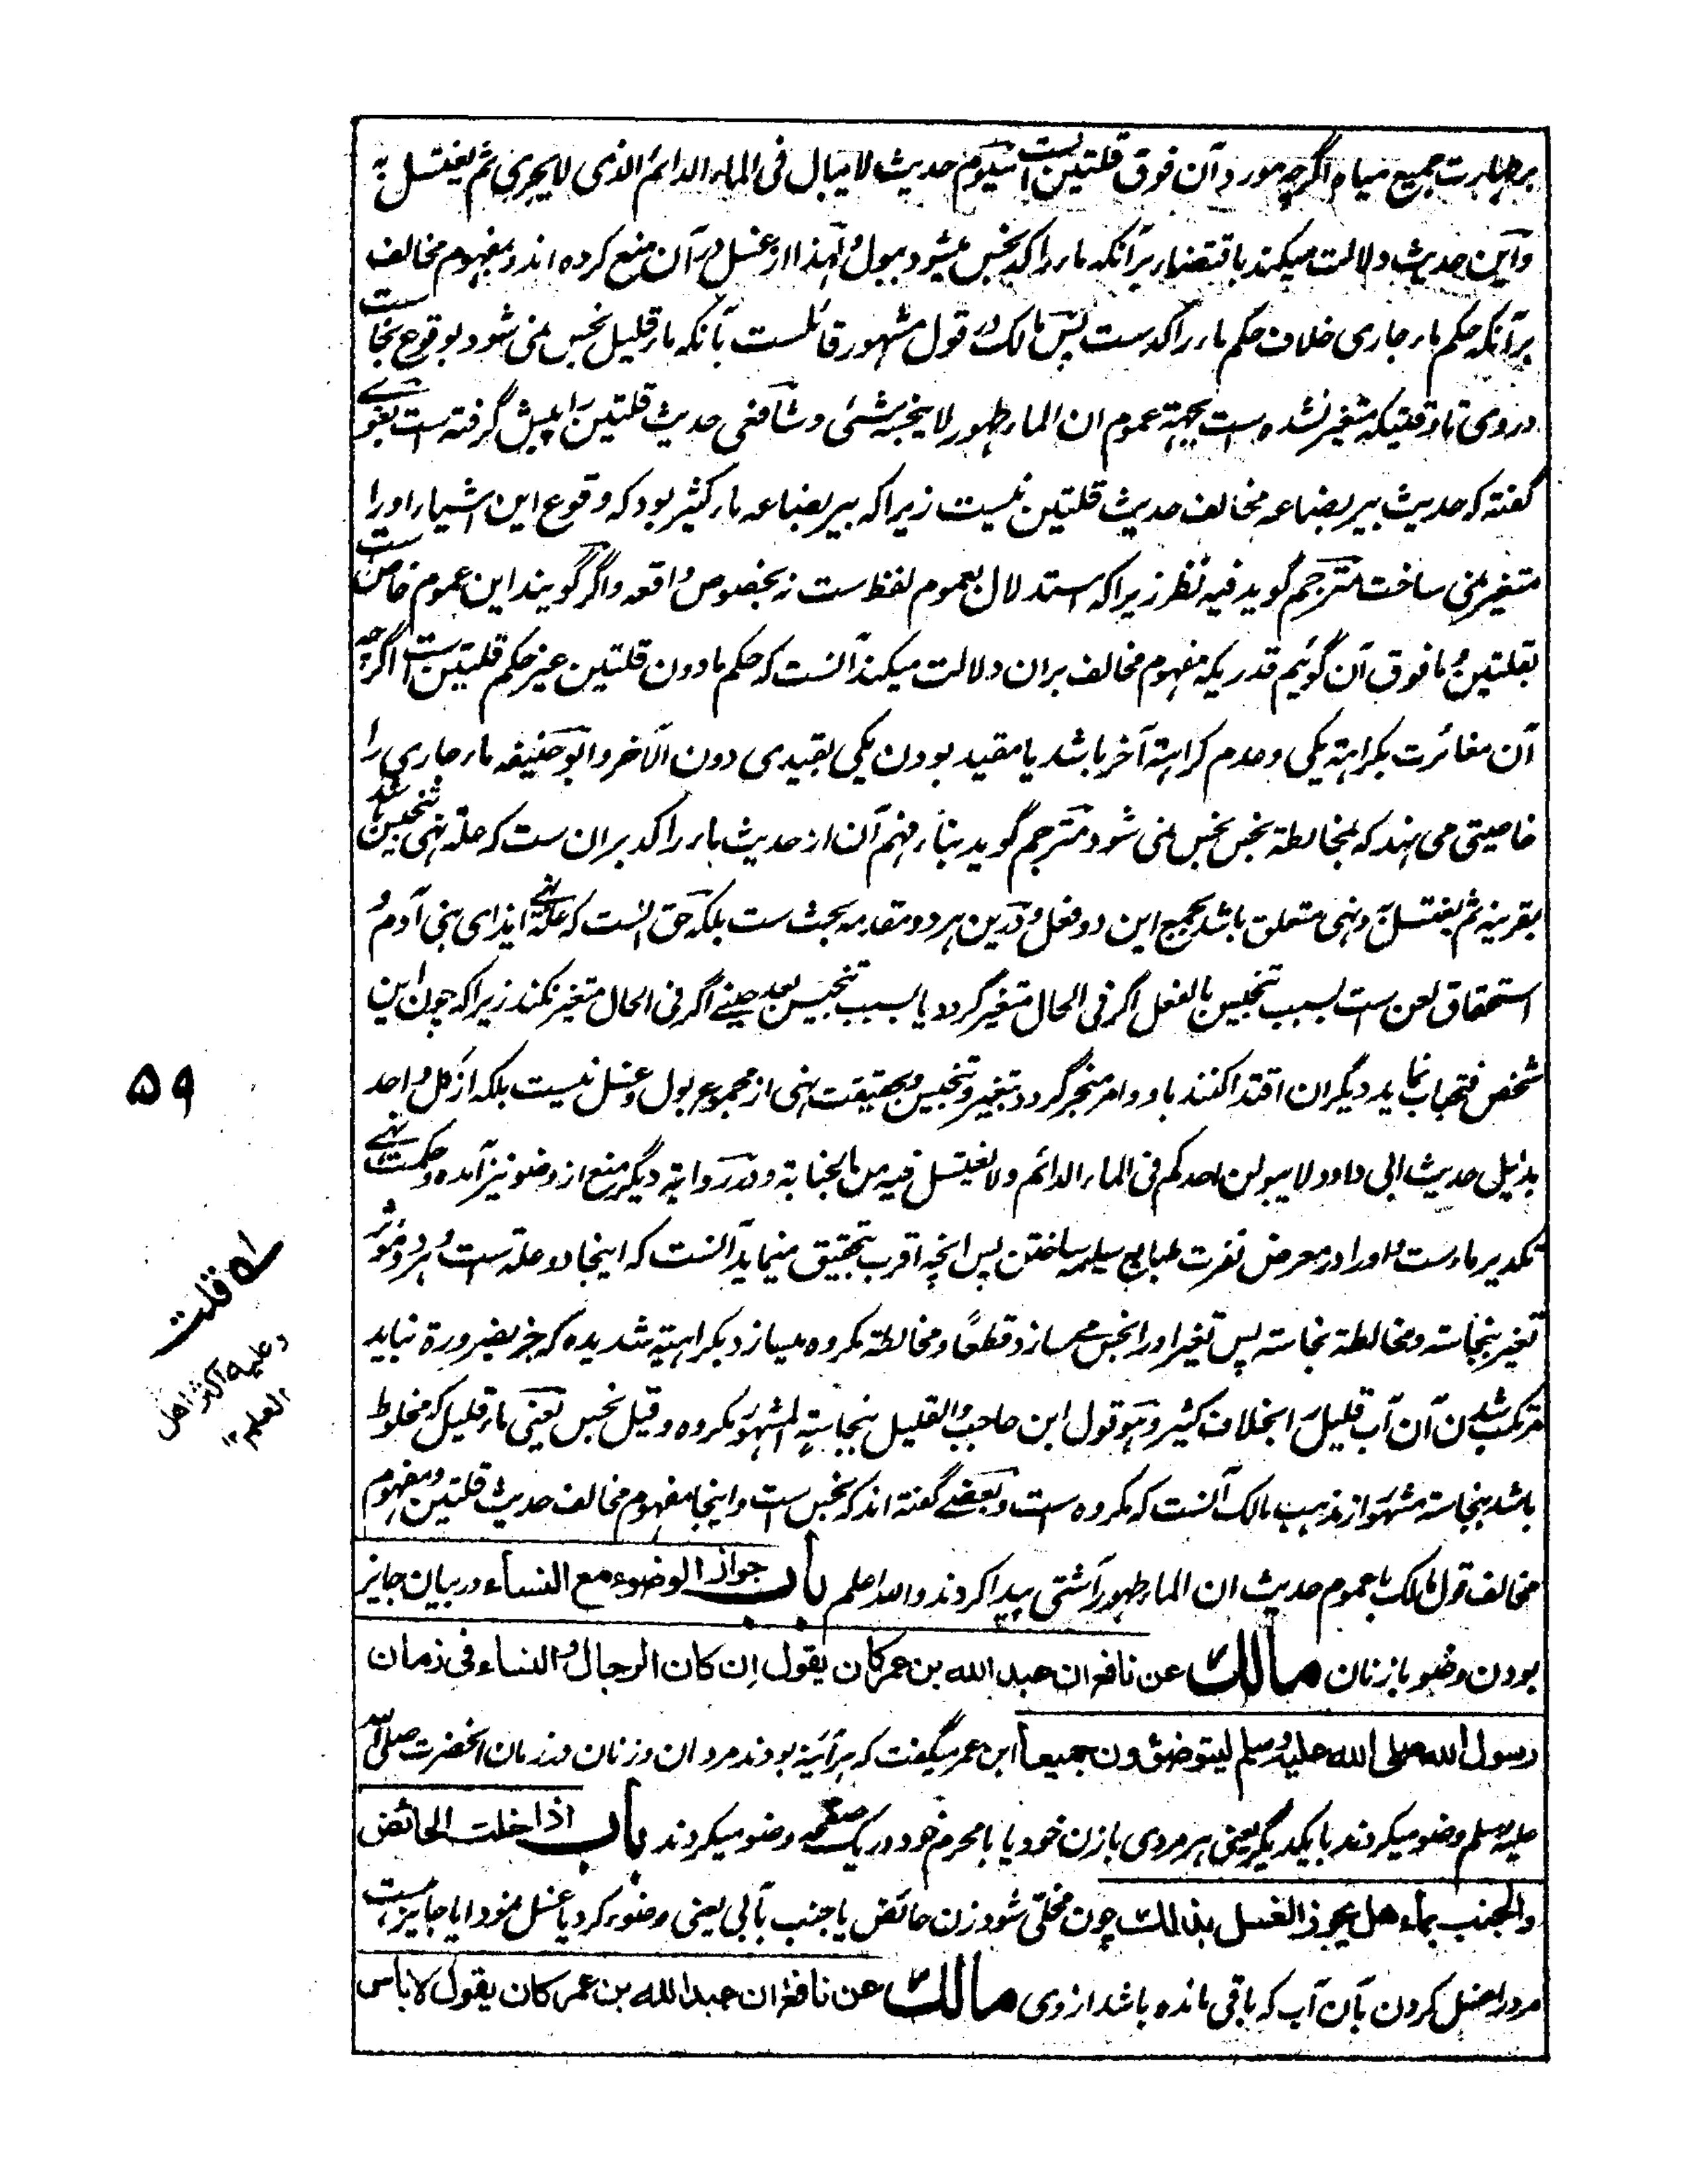 بر طهارت جمیع میاه اگرچه مورد آن فوق قلتین است سیوم حدیث لا یبال فی الماء الدائم الذی لا یجری ثم یغتسل به
و این حدیث دلالت میکند باقتضاء بر آنکه ماء راکد نجس میشود ببول لهذا از غسل در آن منع کرده اند و بمفهوم مخالف
بر آنکه حکم ماء جاری خلاف حکم ماء راکد ست پس مالک در قول مشهور قائلست بآنکه ماء قلیل نجس نمی شود بوقوع نجاست
در وی تا وقتیکه متغیر نشده است بجهة عموم ان الماء طهور لا ینجسه شئی و شافعی حدیث قلتین را پیش گرفته است بغوی
گفته که حدیث بیر بضاعه مخالف حدیث قلتین نیست زیرا که بیر بضاعه ماء کثیر بود که وقوع این اشیاء او را
متغیر نمی ساخت مترجم گوید فیه نظر زیرا که استدلال بعموم لفظ ست نه بخصوص واقعه و اگر گویند این عموم خاص ست
بقلتین و ما فوق آن گوئیم قدریکه مفهوم مخالف بران دلالت میکند آنست که حکم ما دون قلتین غیر حکم قلتین ست اگرچه
آن مغائرت بکراهة یکی و عدم کراهة آخر باشد یا مقید بودن یکی بقیدی دون الآخر و ابو حنیفه ماء جاری را
خاصیتی می نهند که بمخالطة نجس نجس نمی شود مترجم گوید بناء فهم آن از حدیث ماء راکد بران ست که علة نهی تنجیس باشد
بقرینه ثم یغتسل به و نهی متعلق باشد بجمیع این دو فعل و درین هر دو مقدمه بحث ست بلکه حق آنست که علة نهی ایذای بنی آدم و
استحقاق لعن ست بسبب تنجیس بالفعل اگر فی الحال متغیر گردد یا بسبب تنجیس بعد حینے اگر فی الحال متغیر نکند زیرا که چون این
شخص فتحباب نماید دیگران اقتدا کنند باو و امر منجر گردد بتغییر و تنجیس و بحقیقت نهی از مجموع بول و غسل نیست بلکه از کل واحد
بدلیل حدیث ابی داود لا یبولن احدکم فی الماء الدائم ولا یغتسل فیه من الجنابة و در روایة دیگر منع از وضو نیز آمده و حکمت نهی
تکدیر ماء ست و او را در معرض نفرت طبایع سلیمه ساختن پس آنچه اقرب بتحقیق مینماید آنست که اینجا دو علة ست و هر دو مؤثر
تغیر بنجاسة و مخالطة نجاسة پس تغیر او را نجس میسازد قطعاً و مخالطة مکروه میسازد بکراهیة شدیده که جز بضرورة نباید
مرتکب شدن آن آب قلیل را بخلاف کثیر و هو قول ابن حاجب والقلیل بنجاسة المشهور مکروه و قیل نجس یعنی ماء قلیل که مخلوط
باشد بنجاسة مشهور از مذهب مالک آنست که مکروه ست و بعضے گفته اند که نجس ست و اینجا مفهوم مخالف حدیث قلتین و مفهوم
مخالف قول مالک با عموم حدیث ان الماء طهور آشتی پیدا کردند والله اعلم باب جواز الوضوء مع النساء در بیان جایز
بودن وضو با زنان مالك عن نافع ان عبد الله بن عمر کان یقول ان کان الرجال والنساء فی زمان
رسول الله صلی الله علیه وسلم لیتوضؤون جمیعا ابن عمر میگفت که هر آئینه بودند مردان و زنان در زمان آنحضرت صلی الله
علیه وسلم وضو میکردند با یکدیگر یعنی هر مردی با زن خود یا با محرم خود در یک وضو میکردند باب اذا خلت الحائض
والجنب بماء هل یجوز الغسل بذالك چون مخلی شود زن حائض یا جنب بآبی یعنی وضوء کرد یا غسل نمود ایا جایز ست
مرد را غسل کردن بآن آب که باقی مانده باشد از وی مالك عن نافع ان عبد الله بن عمر کان یقول لا باس
۵۹
قلت
وعلیه اکثر اهل
العلم